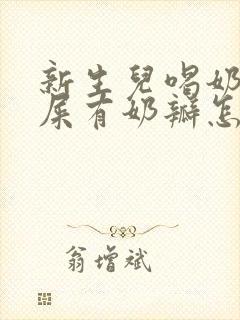 新生兒喝奶
屎有奶瓣怎
翁增斌